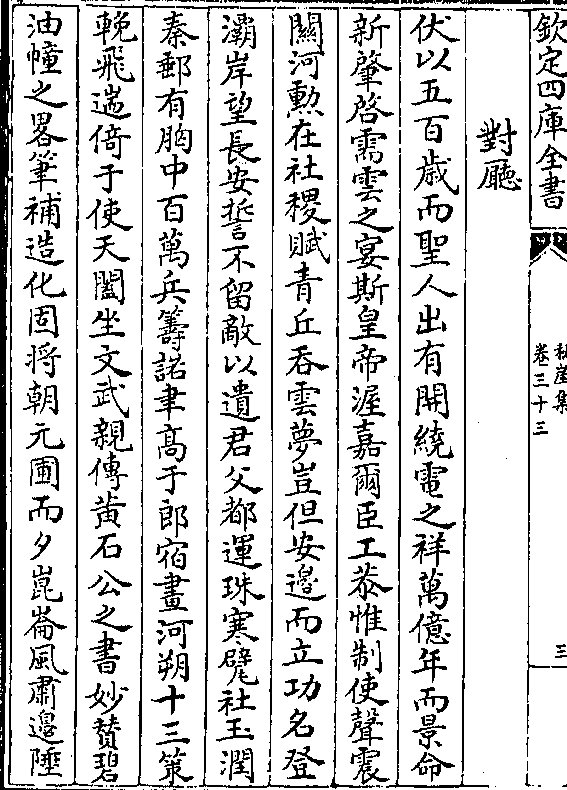 欽定四庫全書
秋崖集
卷三十三
三
對廳
伏以五百歳而聖人出有開繞電之祥萬億年而景命
新肇啓需雲之宴斯皇帝渥嘉爾臣工恭惟制使聲震
關河勲在社稷賦青丘吞雲夢豈但安邉而立功名登
灞岸望長安誓不留敵以遺君父都運珠寒甓社玉潤
秦郵有胸中百萬兵籌諾聿髙于郎宿畫河朔十三策
輓飛遄倚于使天闔坐文武親傳黄石公之書妙賛碧
油幢之畧筆補造化固将朝元圃而夕崑崙風肅邉陲